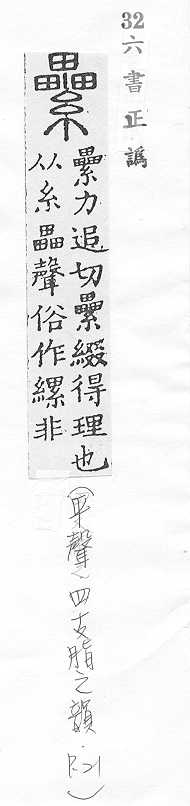 32六書正譌
纍
纍力追切纍綴得理也
从糸畾聲俗作縲非
(平聲～四支脂之韻. P.21)